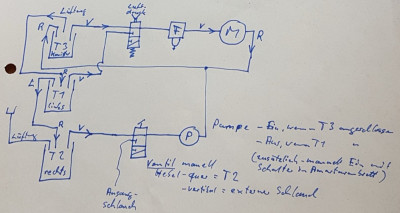 Lüftung
Luft-
druck
R
V
F
V
M
R
T3
R
V
L
T1
links
R
V
T
P
Lüftung
T2
rechts
Ventil manuell
Hebel-quer = T2
-vertikal = externer Schlauch
Ausgang-
schlauch
Pumpe - Ein, wenn T3 angeschlossen
- Aus, wenn T1 "
(zusätzlich - manuell Ein mit
Schalter im Armaturenbrett)